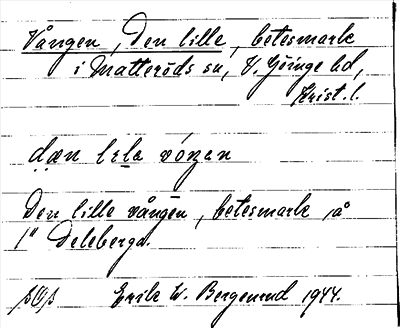 Vången, Den lille, betesmark
i Matteröds sn, V. Göinge hd,
Krist. l.
dæn lɩla vóŋen
Den lille vången, betesmark på
1" Deleberga.
Erik W. Bergenrud 1944.